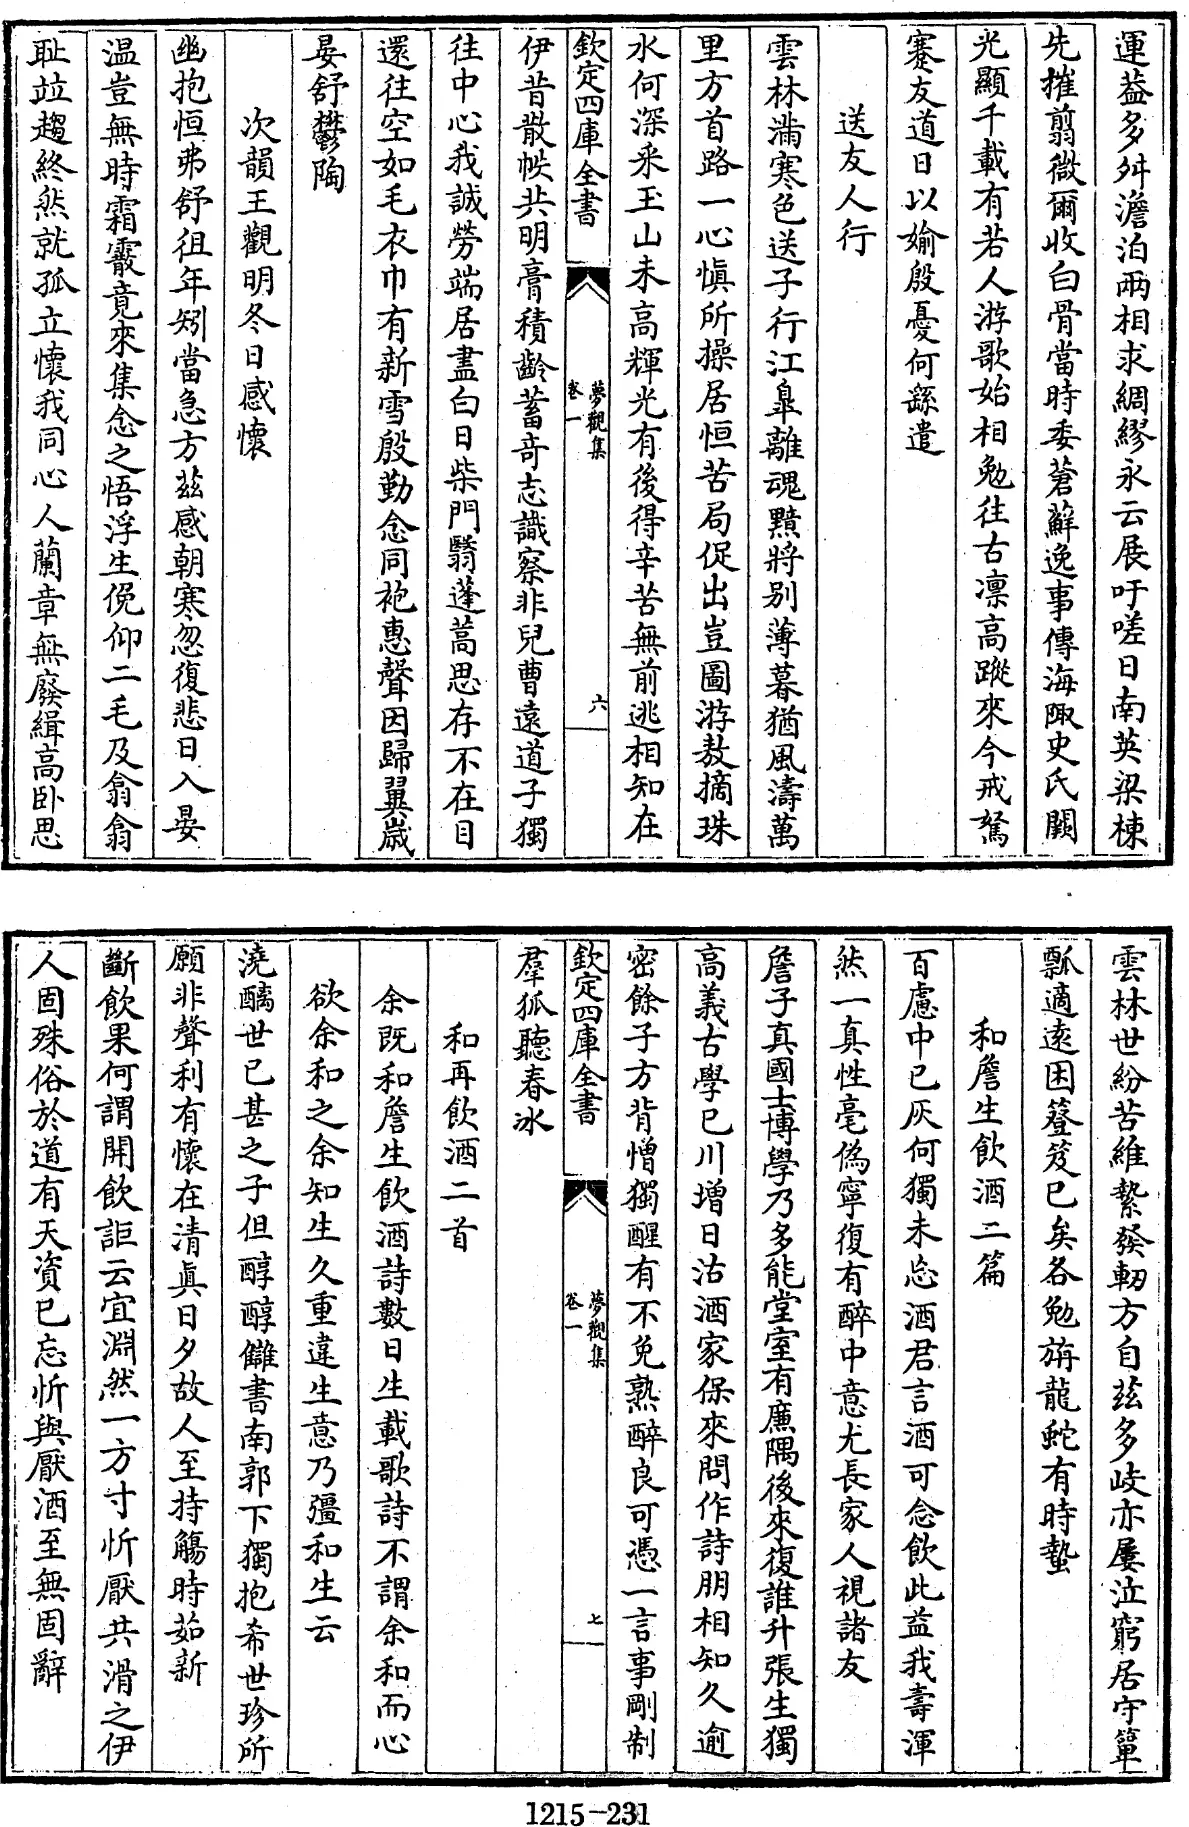 運益多舛澹泊兩相求綢繆永云展吁嗟日南英梁棟
先摧翦微爾收白骨當時委蒼蘚逸事傳海陬史氏闕
光顯千載有若人游歌始相勉往古凛高蹤來今戒駑
蹇友道日以媮殷憂何繇遣
送友人行
雲林滿寒色送子行江臯離魂黯將别薄暮猶風濤萬
里方首路一心慎所操居恒苦局促出豈圖游敖摘珠
水何深采玉山未高輝光有後得辛苦無前逃相知在
欽定四庫全書
夢觀集
卷一
六
伊昔散帙共明膏積齡蓄奇志識察非兒曹遠道子獨
往中心我誠勞端居盡白日柴門翳蓬蒿思存不在目
還往空如毛衣巾有新雪殷勤念同袍惠聲因歸翼歲
晏舒鬱陶
次韻王觀明冬日感懷
幽抱恒弗舒徂年矧當急方茲感朝寒忽復悲日入晏
温豈無時霜霰竟來集念之悟浮生俛仰二毛及翕翕
耻竝趨終然就孤立懷我同心人蘭章無廢緝高卧思
雲林世紛苦維縶發軔方自茲多岐亦屢泣窮居守簞
瓢適遠困簦笈已矣各勉旃龍蛇有時蟄
和詹生飲酒二篇
百慮中已灰何獨未忘酒君言酒可念飲此益我壽渾
然一真性毫偽寧復有醉中意尤長家人視諸友
詹子真國士博學乃多能堂室有廉隅後來復誰升張生獨
高義古學已川增日沽酒家保來問作詩朋相知久逾
密餘子方背憎獨醒有不免熟醉良可憑一言事剛制
欽定四庫全書
夢觀集
卷一
七
羣狐聽春冰
和再飲酒二首
余既和詹生飲酒詩數日生載歌詩不謂余和而心
欲余和之余知生久重違生意乃彊和生云
澆醨世已甚之子但醇醇讎書南郭下獨抱希世珍所
願非聲利有懷在清真日夕故人至持觴時茹新
斷飲果何謂開飲詎云宜淵然一方寸忻厭共滑之伊
人固殊俗於道有天資已忘忻與厭酒至無固辭
1215-231